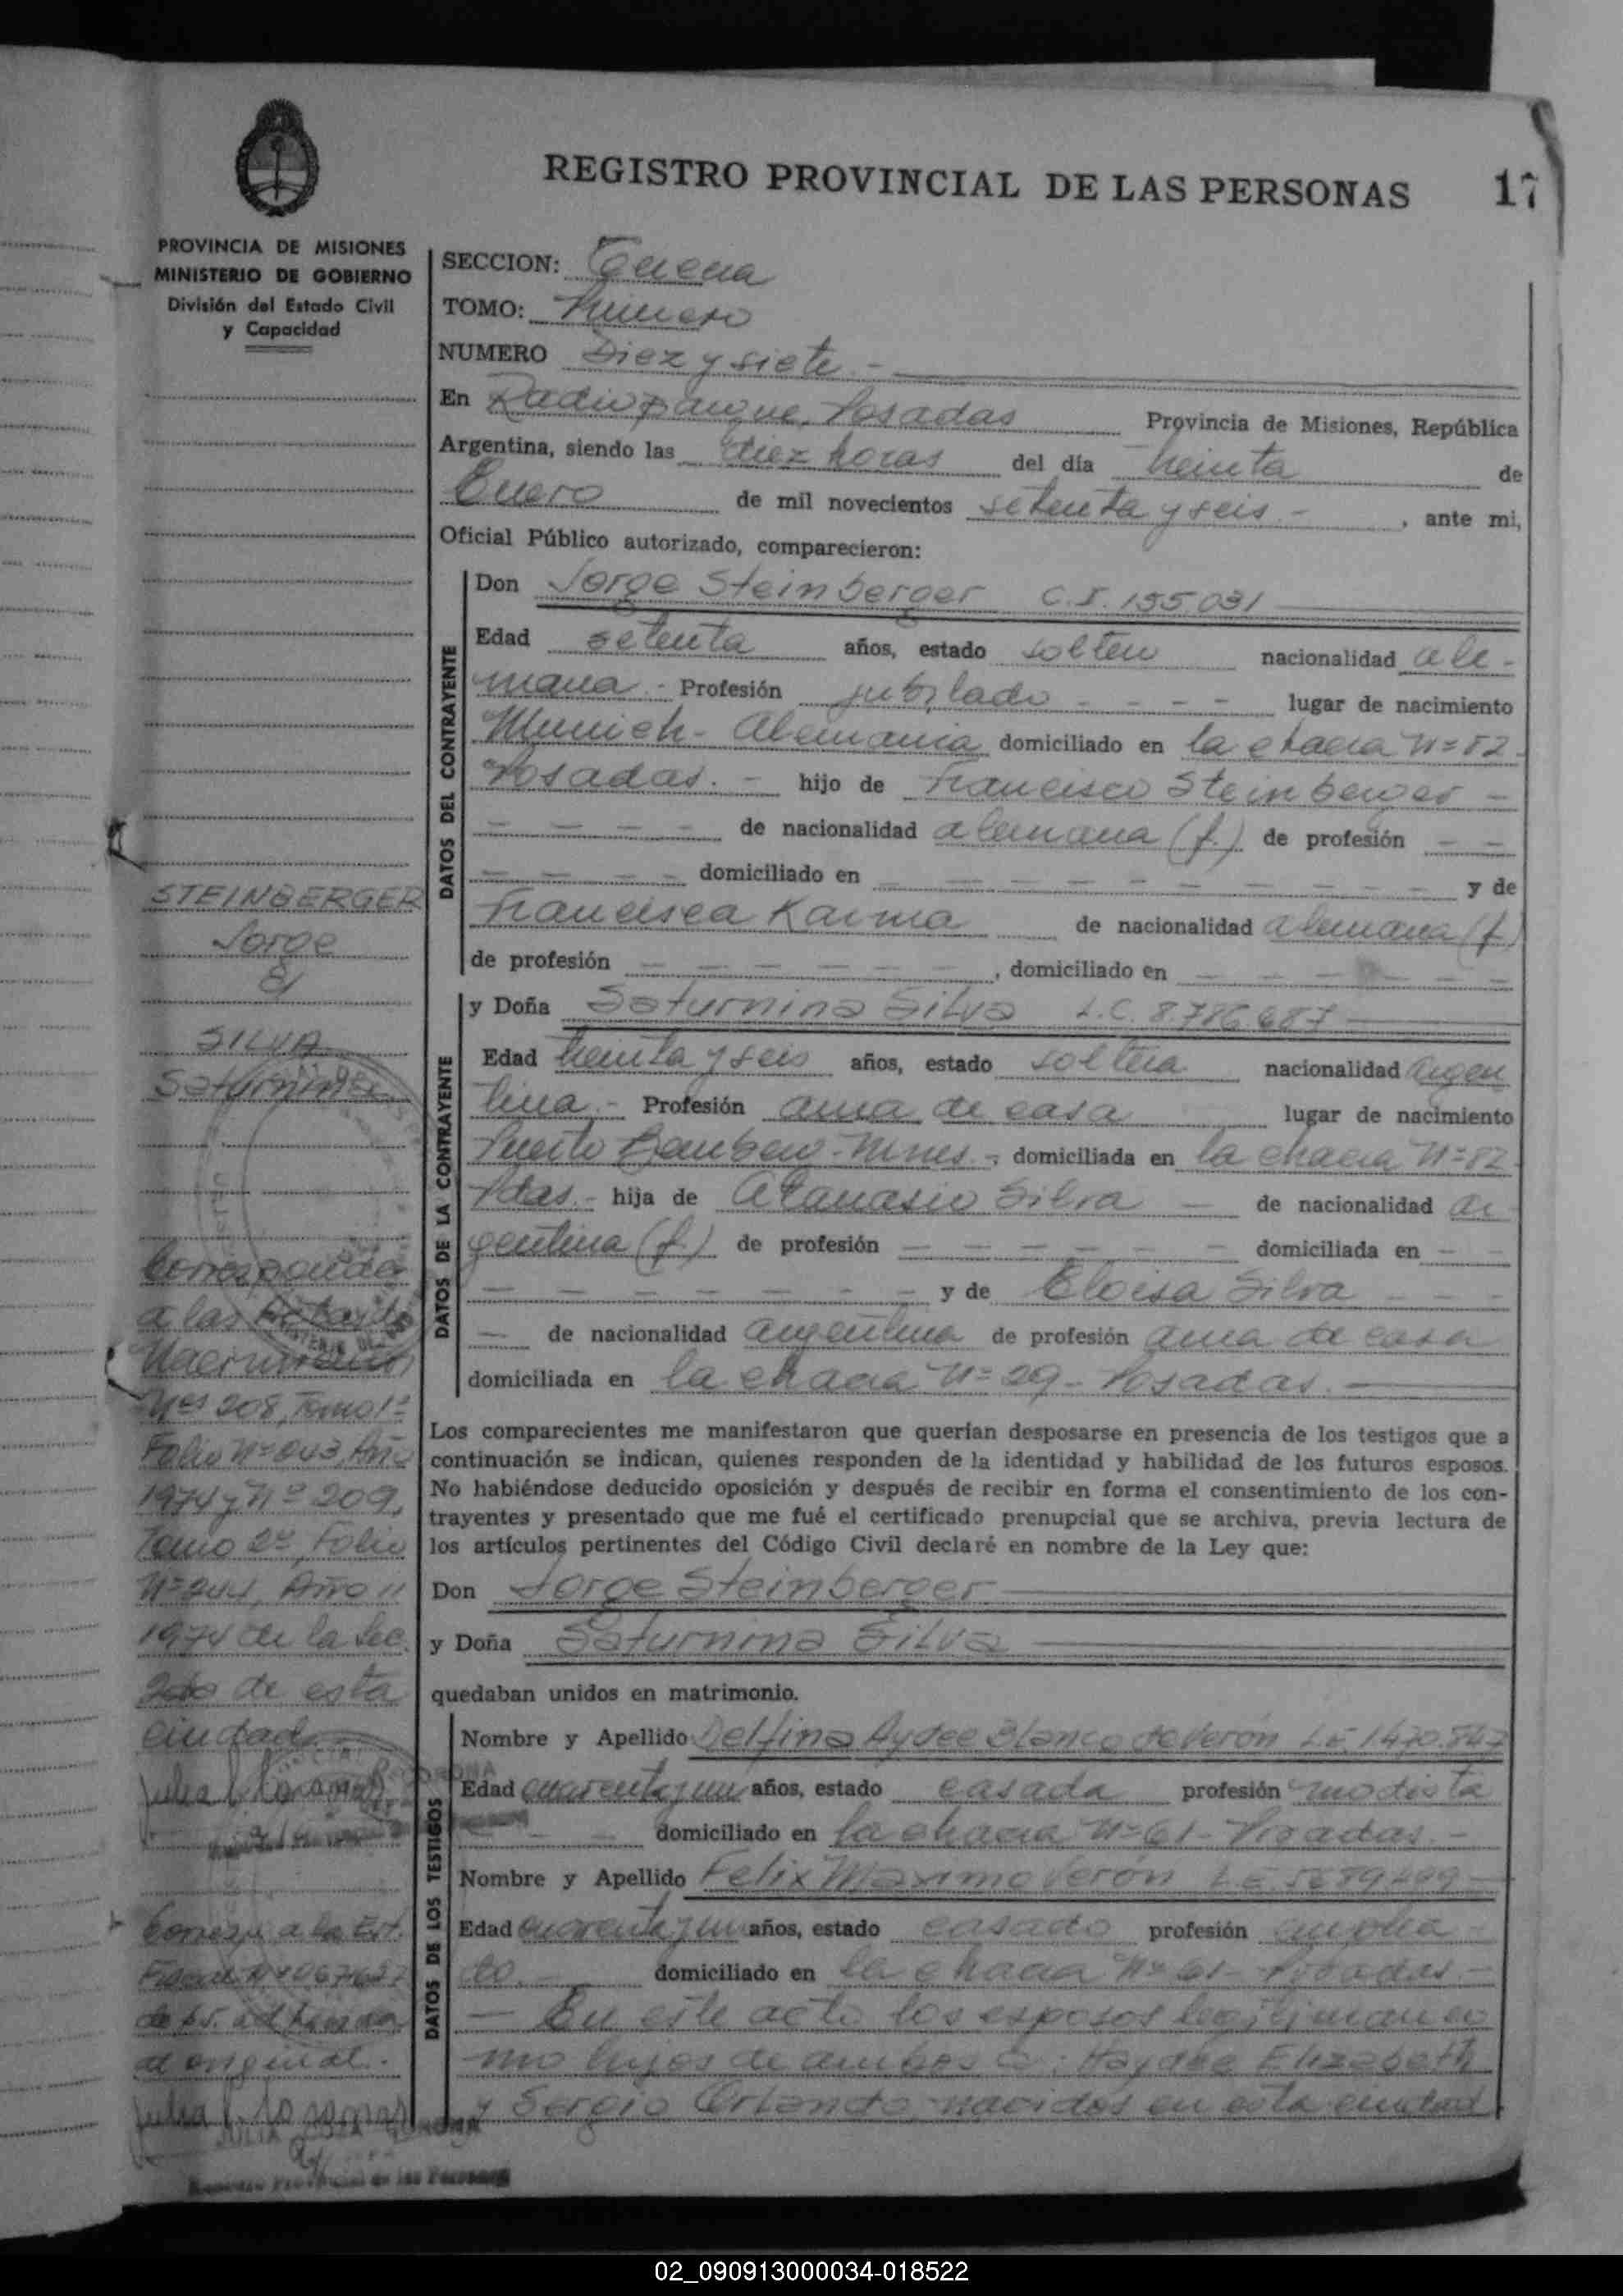 REGISTRO PROVINCIAL DE LAS PERSONAS 17
PROVINCIA DE MISIONES
MINISTERIO DE GOBIERNO
División del Estado Civil
y Capacidad
STEINBERGER
Jorge
c/
SILVA
Saturnina
Corresponde
a las Actas de
Nacimientos
Nos 208, Tomo 1º
Folio Nº 043, Año
1974 y Nº 209,
Tomo 2º, Folio
Nº 244, Año
1974 de la Sec.
2da de esta
ciudad
al original.
SECCION: Tercera
TOMO: Primero
NUMERO Diez y siete.-
En Radio parque, Posadas Provincia de Misiones, República
Argentina, siendo las diez horas del día treinta de
Enero de mil novecientos setenta y seis.- , ante mi,
Oficial Público autorizado, comparecieron:
DATOS DEL CONTRAYENTE
Don Jorge Steinberger C.I. 155.031
Edad setenta años, estado soltero nacionalidad ale-
mana.- Profesión jubilado - - - - lugar de nacimiento
Munich - Alemania domiciliado en la chacra Nº 82
Posadas. - hijo de Francisco Steinberger -
- - - - de nacionalidad alemana (f.) de profesión - -
- - - - domiciliado en - - - - - - - y de
Francisca Karma de nacionalidad alemana (f.)
de profesión - - - - - - , domiciliado en - - - - - -
DATOS DE LA CONTRAYENTE
y Doña Saturnina Silva L.C. 8.786.687
Edad treinta y seis años, estado soltera nacionalidad argen
tina.- Profesión ama de casa lugar de nacimiento
Puerto - Mnes. - , domiciliada en la chacra Nº 82
Pdas.- hija de Atanasio Silva - de nacionalidad ar
gentina (f.) de profesión - - - - - - domiciliada en - -
- - - - - - - - y de Eloisa Silva - - -
- de nacionalidad argentina de profesión ama de casa
domiciliada en la chacra Nº 29 - Posadas. -
Los comparecientes me manifestaron que querían desposarse en presencia de los testigos que a
continuación se indican, quienes responden de la identidad y habilidad de los futuros esposos.
No habiéndose deducido oposición y después de recibir en forma el consentimiento de los con-
trayentes y presentado que me fué el certificado prenupcial que se archiva, previa lectura de
los artículos pertinentes del Código Civil declaré en nombre de la Ley que:
Don Jorge Steinberger
y Doña Saturnina Silva
quedaban unidos en matrimonio.
DATOS DE LOS TESTIGOS
Nombre y Apellido Delfina Aydee Blanco de Verón L.E. 1.430.547
Edad cuarenta y un años, estado casada profesión modista
- - domiciliado en la chacra Nº 61 - Posadas. -
Nombre y Apellido Felix Maximo Verón L.E.
Edad cuarenta y un años, estado casado profesión emplea
do. domiciliado en la chacra Nº 61 - Posadas. -
- En este acto los esposos legitiman co
mo hijos de ambos a: Haydee Elizabeth
y Sergio Orlando, nacidos en esta ciudad
02_090913000034-018522